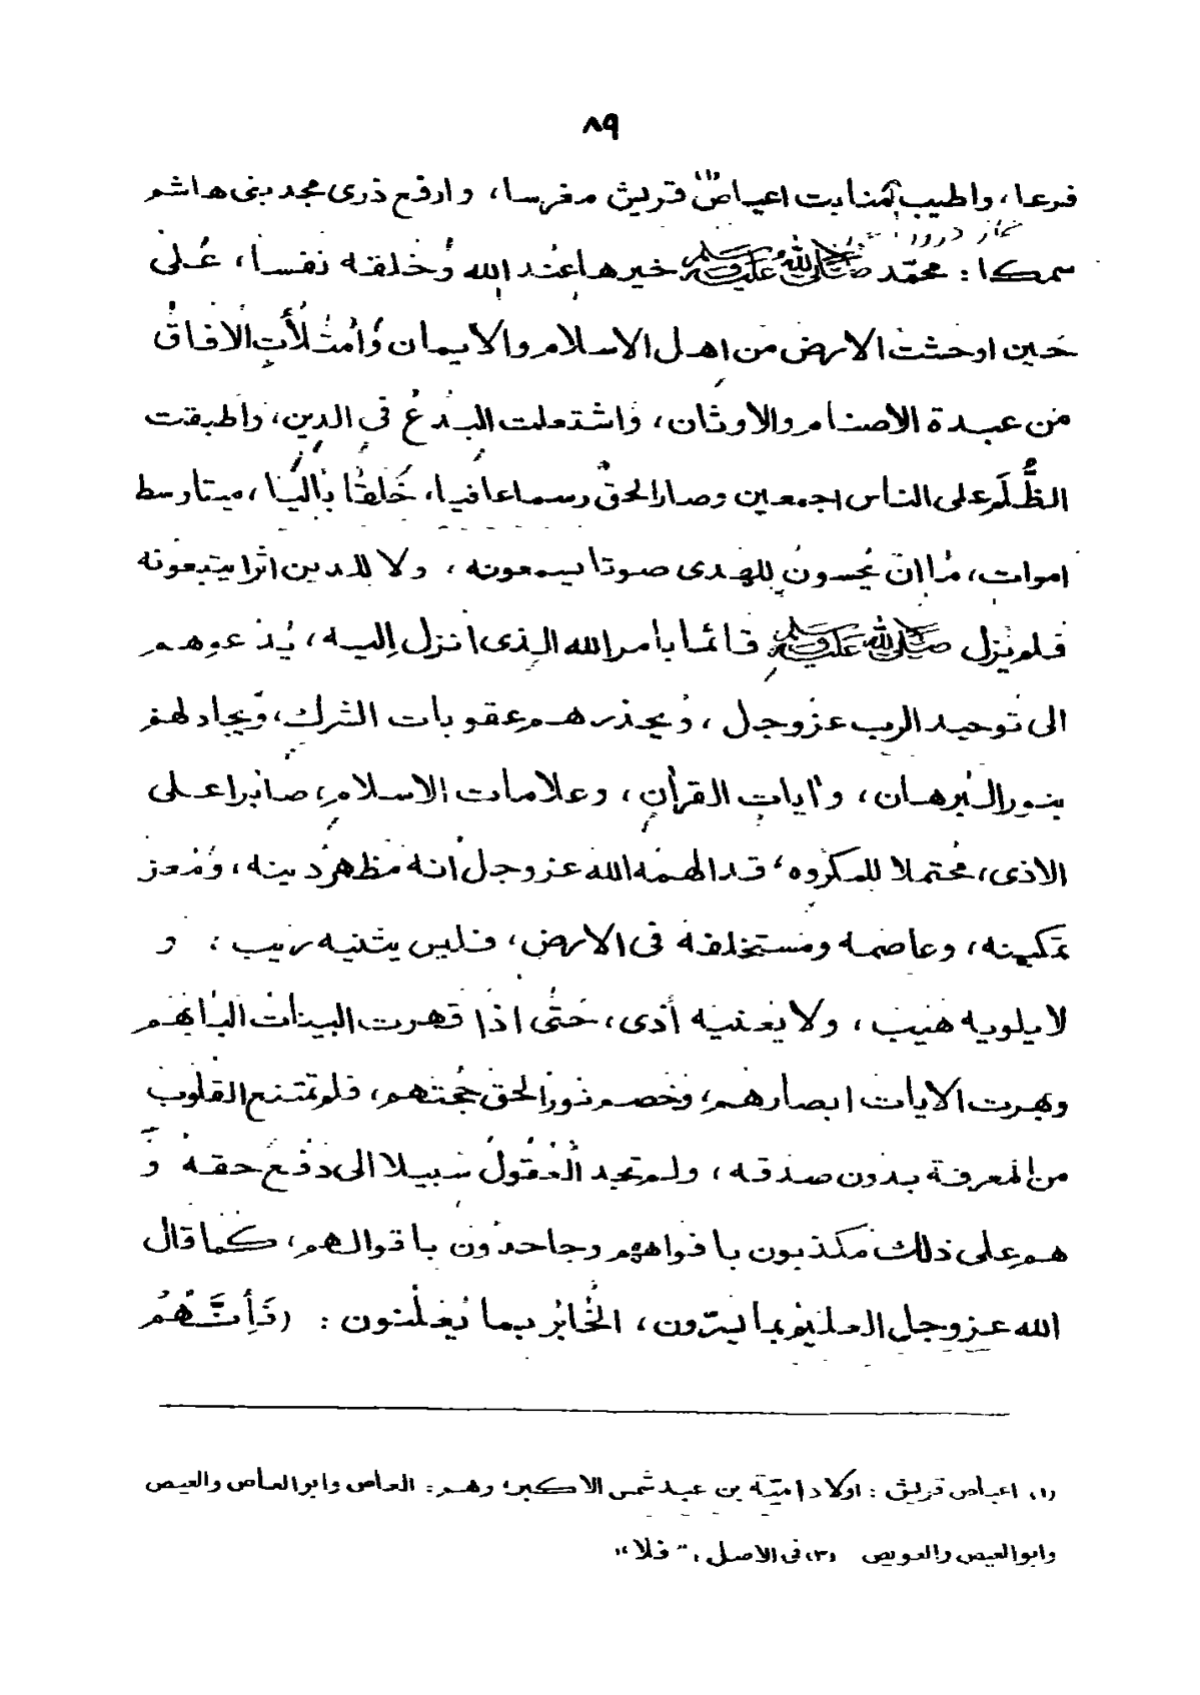 ٨٩
فرعا، واطيب منابت اعياص(١) قريش مغرسا، وارفع ذرى مجد بنى هاشم
سمكا: محمّد صلى الله عليه وسلم خيرها عند الله وخلقه نفسا، على
حين اوحشت الارض من اهل الاسلام والايمان وامتلأت الافاق
من عبدة الاصنام والاوثان، واشتعلت البدع في الدين، واطبقت
الظُّلَم على الناس اجمعين وصار الحق رسما عافيا، خَلَقا باليا، ميتا وسط
اموات، ما ان يحسون للهدى صوتا يسمعونه، ولا للدين اثرا يتبعونه
فلم يزل صلى الله عليه وسلم قائما بأمر الله الذى انزل اليه، يدعوهم
الى توحيد الرب عز وجل، ويحذرهم عقوبات الشرك، ويجادلهم
بنور البرهان، وآيات القرآن، وعلامات الاسلام، صابرا على
الاذى، محتملا للمكروه، قد الهمه الله عز وجل انه مظهر دينه، ومعز
تمكينه، وعاصمه ومستخلفه فى الارض، فليس يثنيه ريب، و
لا يلويه هيب، ولا يعنيه أذى، حتى اذا قهرت البينات البابهم
وبهرت الايات ابصارهم، وخصم نور الحق حجتهم، فلم تمتنع القلوب
من المعرفة بدون صدقه، ولم تجد العقول سبيلا الى دفع حقه و
هم على ذلك مكذبون بافواههم وجاحدون باقوالهم، كما قال
الله عز وجل العليم بما يسرّون، الخابر بما يعلنون: (فَإِنَّهُمْ
(١) اعياص قريش: اولاد اميّة بن عبد شمس الاكبر؛ وهم: العاص وابو العاص والعيص
وابو العيص والعويص (٢) فى الاصل: "فلا"